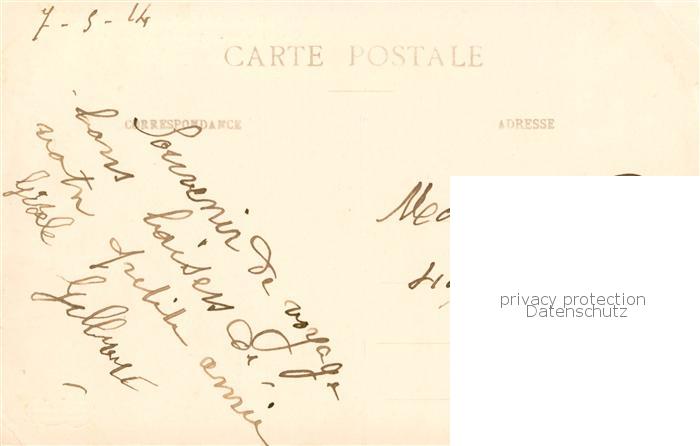 7-5-14
CARTE POSTALE
CORRESPONDANCE
ADRESSE
Souvenir de voyage
bons baisers de
votre petite amie
Gilberte
privacy protection
Datenschutz